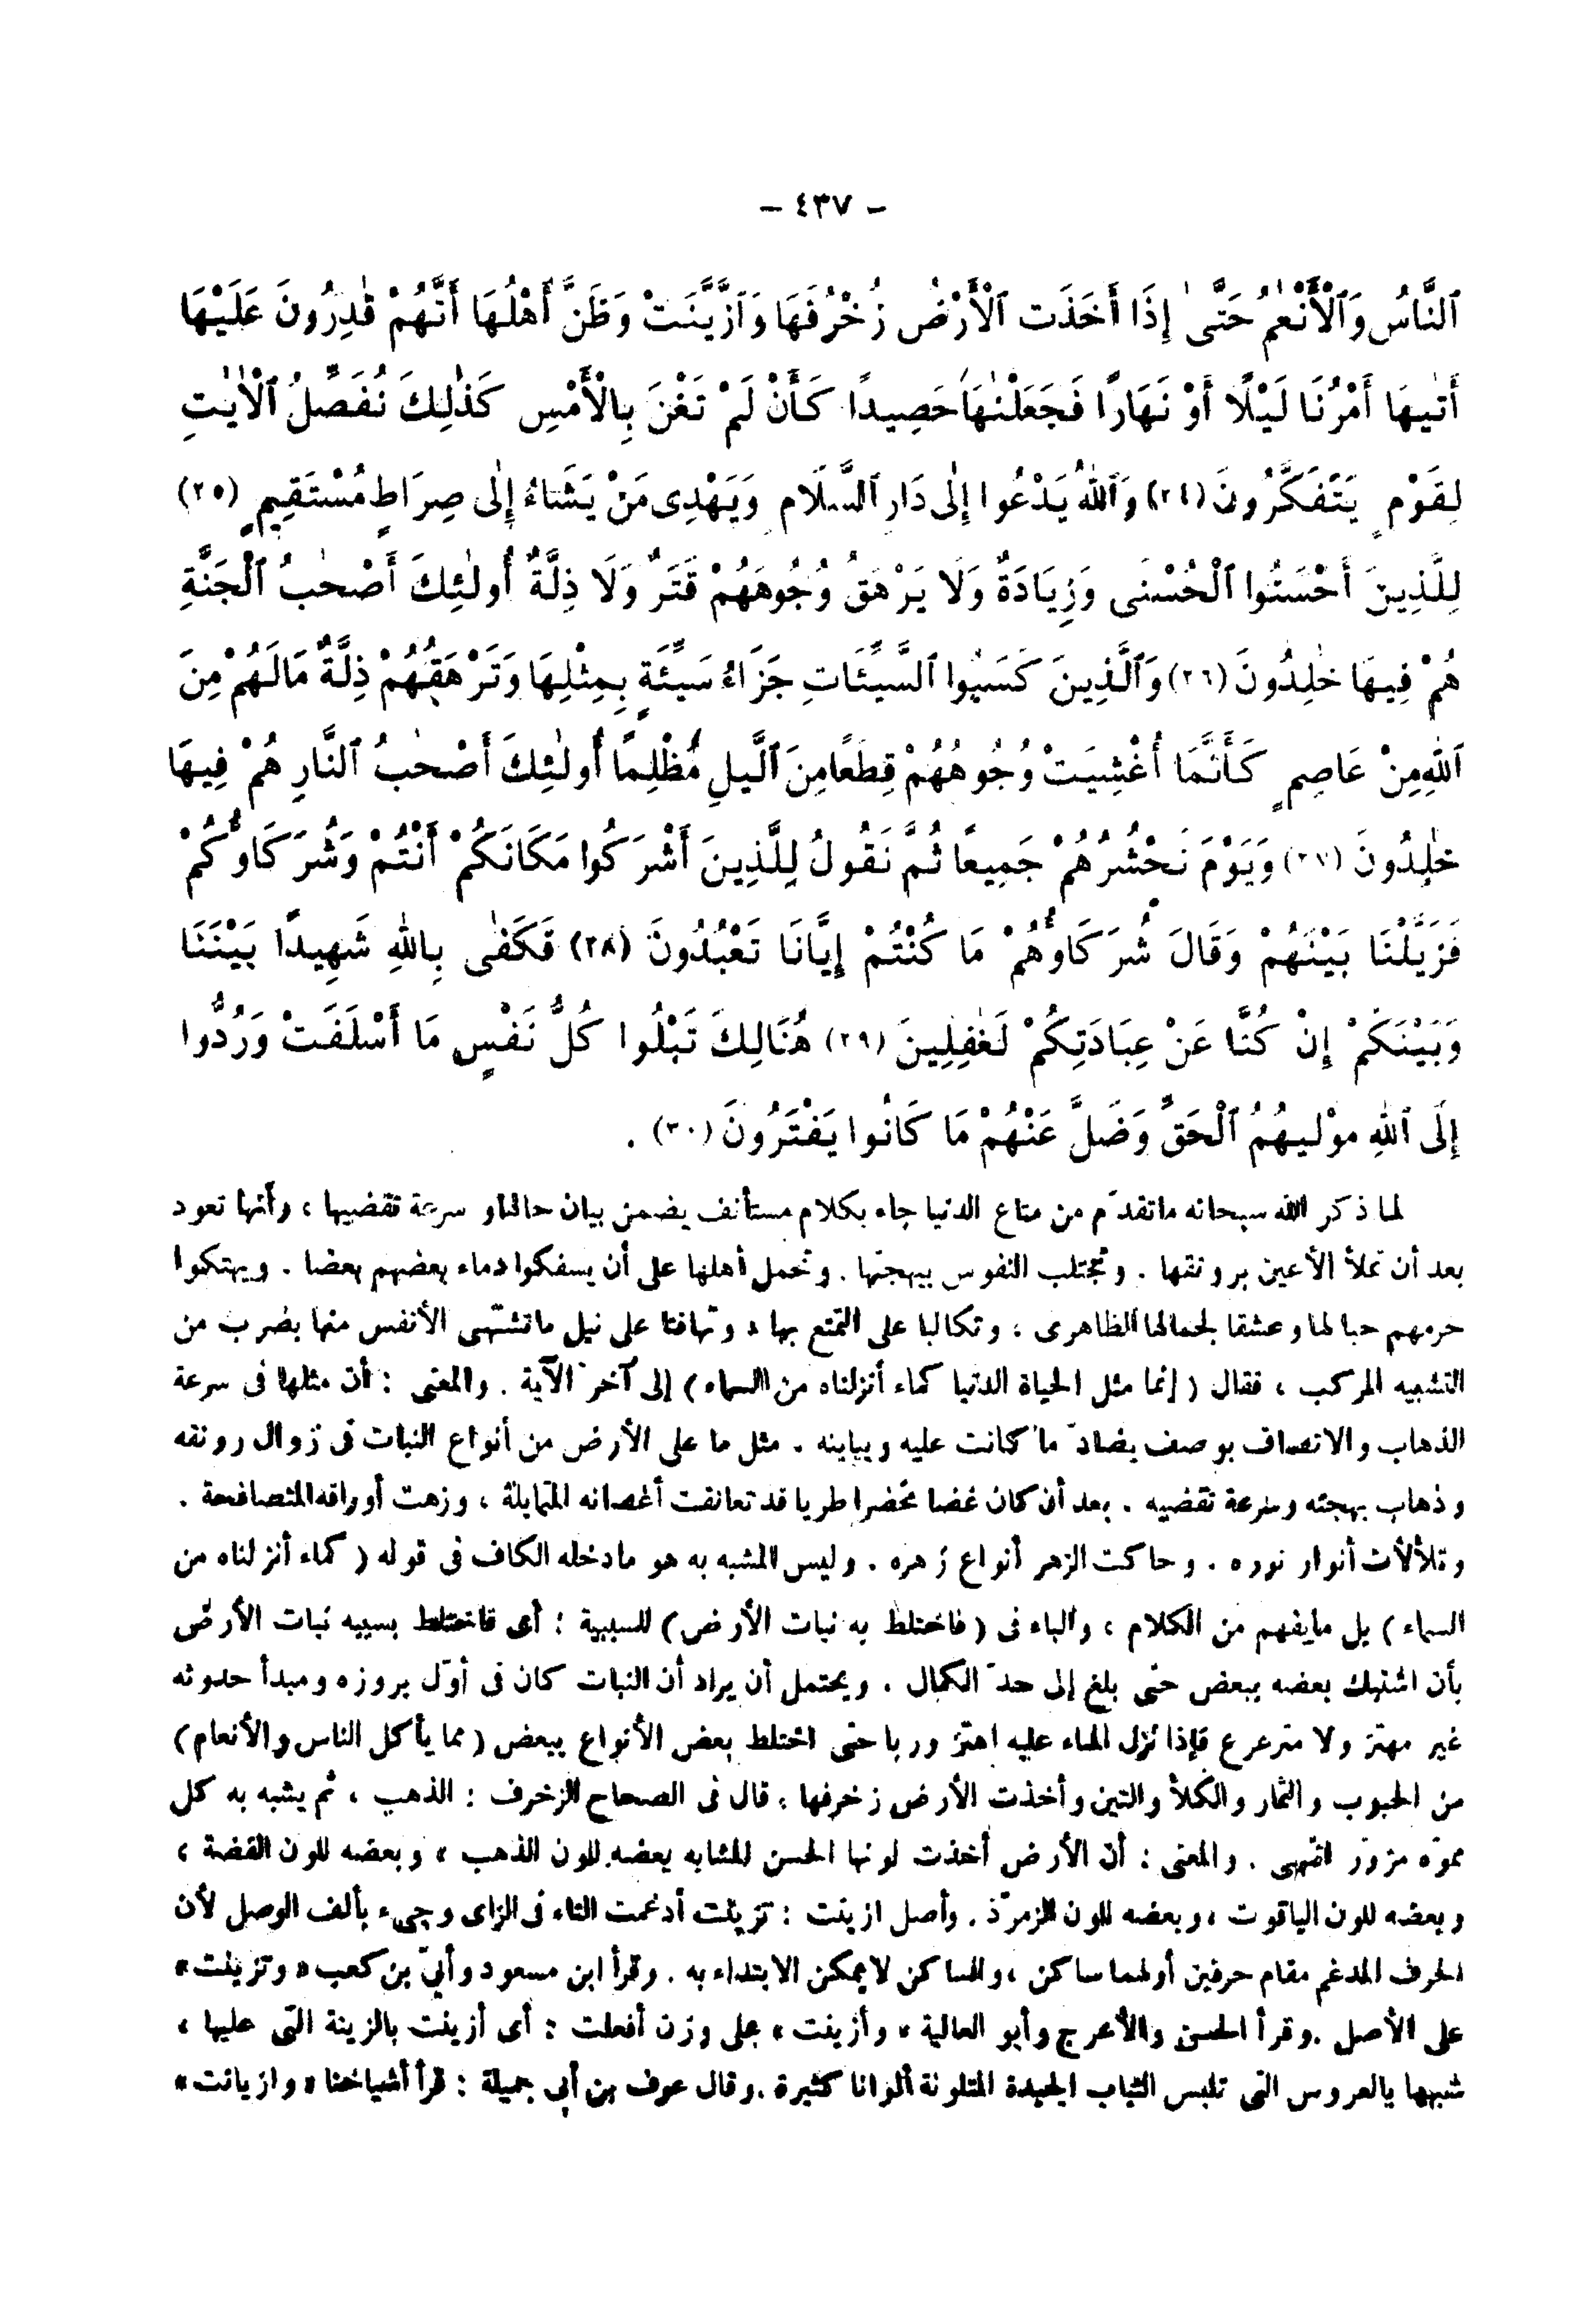 – ٤٣٧ –
ٱلنَّاسُ وَٱلْأَنْعٰمُ حَتَّىٰ إِذَا أَخَذَتِ ٱلْأَرْضُ زُخْرُفَهَا وَٱزَّيَّنَتْ وَظَنَّ أَهْلُهَا أَنَّهُمْ قٰدِرُونَ عَلَيْهَا
أَتٰيهَا أَمْرُنَا لَيْلًا أَوْ نَهَارًا فَجَعَلْنٰهَا حَصِيدًا كَأَنْ لَمْ تَغْنَ بِالْأَمْسِ كَذٰلِكَ نُفَصِّلُ ٱلْاٰيٰتِ
لِقَوْمٍ يَتَفَكَّرُونَ (٢٤) وَٱللّٰهُ يَدْعُوا إِلٰى دَارِ ٱلسَّلَامِ وَيَهْدِى مَنْ يَشَاءُ إِلٰى صِرَاطٍ مُسْتَقِيمٍ (٢٥)
لِلَّذِينَ أَحْسَنُوا ٱلْحُسْنٰى وَزِيَادَةٌ وَلَا يَرْهَقُ وُجُوهَهُمْ قَتَرٌ وَلَا ذِلَّةٌ أُولٰئِكَ أَصْحٰبُ ٱلْجَنَّةِ
هُمْ فِيهَا خٰلِدُونَ (٢٦) وَٱلَّذِينَ كَسَبُوا ٱلسَّيِّئَاتِ جَزَاءُ سَيِّئَةٍ بِمِثْلِهَا وَتَرْهَقُهُمْ ذِلَّةٌ مَالَهُمْ مِنَ
ٱللّٰهِ مِنْ عَاصِمٍ كَأَنَّمَا أُغْشِيَتْ وُجُوهُهُمْ قِطَعًا مِنَ ٱلَّيلِ مُظْلِمًا أُولٰئِكَ أَصْحٰبُ ٱلنَّارِ هُمْ فِيهَا
خٰلِدُونَ (٢٧) وَيَوْمَ نَحْشُرُهُمْ جَمِيعًا ثُمَّ نَقُولُ لِلَّذِينَ أَشْرَكُوا مَكَانَكُمْ أَنْتُمْ وَشُرَكَاؤُكُمْ
فَزَيَّلْنَا بَيْنَهُمْ وَقَالَ شُرَكَاؤُهُمْ مَا كُنْتُمْ إِيَّانَا تَعْبُدُونَ (٢٨) فَكَفٰى بِاللّٰهِ شَهِيدًا بَيْنَنَا
وَبَيْنَكُمْ إِنْ كُنَّا عَنْ عِبَادَتِكُمْ لَغٰفِلِينَ (٢٩) هُنَالِكَ تَبْلُوا كُلُّ نَفْسٍ مَا أَسْلَفَتْ وَرُدُّوا
إِلَى ٱللّٰهِ مَوْلٰيهُمُ ٱلْحَقِّ وَضَلَّ عَنْهُمْ مَا كَانُوا يَفْتَرُونَ (٣٠) .
لما ذكر الله سبحانه ماتقدّم من متاع الدنيا جاء بكلام مستأنف يضمن بيان حالها و سرعة تقضيها ، وأنها تعود
بعد أن تملأ الأعين برونقها . وتجتلب النفوس ببهجتها . وتحمل أهلها على أن يسفكوا دماء بعضهم بعضا . ويهتكوا
حرمهم حبا لها وعشقا لجمالها الظاهرى ، وتكالبا على التمتع بها ، وتهافتا على نيل ماتشتهى الأنفس منها بضرب من
التشبيه المركب ، فقال ( إنما مثل الحياة الدنيا كماء أنزلناه من السماء ) إلى آخر الآية . والمعنى : أن مثلها فى سرعة
الذهاب والاتصاف بوصف يضادّ ما كانت عليه ويباينه . مثل ما على الأرض من أنواع النبات فى زوال رونقه
وذهاب بهجته وسرعة تقضيه . بعد أن كان غضا مخضرا طريا قد تعانقت أغصانه المتمايلة ، وزهت أوراقه المتصافحة .
وتلألأت أنوار نوره . وحاكت الزهر أنواع زهره . وليس المشبه به هو مادخله الكاف فى قوله ( كماء أنزلناه من
السماء ) بل مايفهم من الكلام ، والباء فى ( فاختلط به نبات الأرض ) للسببية : أى فاختلط بسببه نبات الأرض
بأن اشتبك بعضه ببعض حتى بلغ إلى حدّ الكمال . ويحتمل أن يراد أن النبات كان فى أوّل بروزه ومبدأ حدوثه
غير مهتز ولا مترعرع فإذا نزل الماء عليه اهتز وربا حتى اختلط بعض الأنواع ببعض ( مما يأكل الناس والأنعام )
من الحبوب والثمار والكلأ والتين وأخذت الأرض زخرفها ، قال فى الصحاح الزخرف : الذهب ، ثم يشبه به كل
مموّه مزوّر انتهى . والمعنى : أن الأرض أخذت لونها الحسن المشابه بعضه للون الذهب ، وبعضه للون الفضة ،
وبعضه للون الياقوت ، وبعضه للون الزمرّذ . وأصل ازينت : تزينت أدغمت التاء فى الزاى وجىء بألف الوصل لأن
الحرف المدغم مقام حرفين أولهما ساكن ، والساكن لايمكن الابتداء به . وقرأ ابن مسعود وأبىّ بن كعب « وتزينت »
على الأصل . وقرأ الحسن والأعرج وأبو العالية « وأزينت » على وزن أفعلت : أى أزينت بالزينة التى عليها ،
شبهها بالعروس التى تلبس الثياب الجيدة المتلونة ألوانا كثيرة . وقال عوف بن أبى جميلة : قرأ أشياخنا « وازيانت »